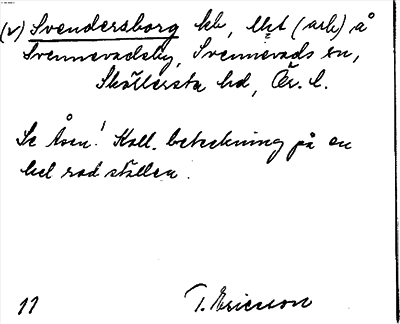 (v) Svendersborg kb, lht (arb) å
Svennevadsby, Svennevads sn,
Sköllersta hd, Ör. l.
Se Åsen! Koll. beteckning på en
hel rad ställen.
11 T. Ericsson